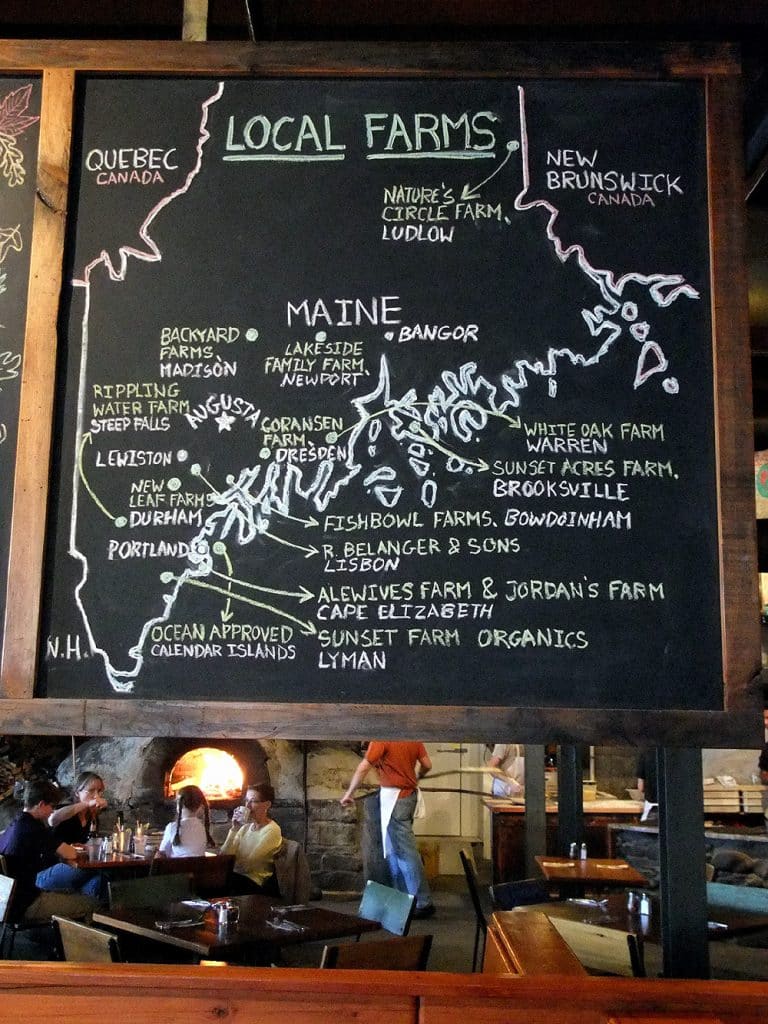 LOCAL FARMS
QUEBEC
CANADA
NEW
BRUNSWICK
CANADA
NATURE'S
CIRCLE FARM,
LUDLOW
MAINE
BANGOR
BACKYARD
FARMS,
MADISON
LAKESIDE
FAMILY FARM,
NEWPORT
RIPPLING
WATER FARM
STEEP FALLS
AUGUSTA
GORANSEN
FARM,
DRESDEN
WHITE OAK FARM
WARREN
LEWISTON
SUNSET ACRES FARM,
BROOKSVILLE
NEW
LEAF FARMS
DURHAM
FISHBOWL FARMS, BOWDOINHAM
PORTLAND
R. BELANGER & SONS
LISBON
ALEWIVES FARM & JORDAN'S FARM
CAPE ELIZABETH
N.H.
OCEAN APPROVED
CALENDAR ISLANDS
SUNSET FARM ORGANICS
LYMAN